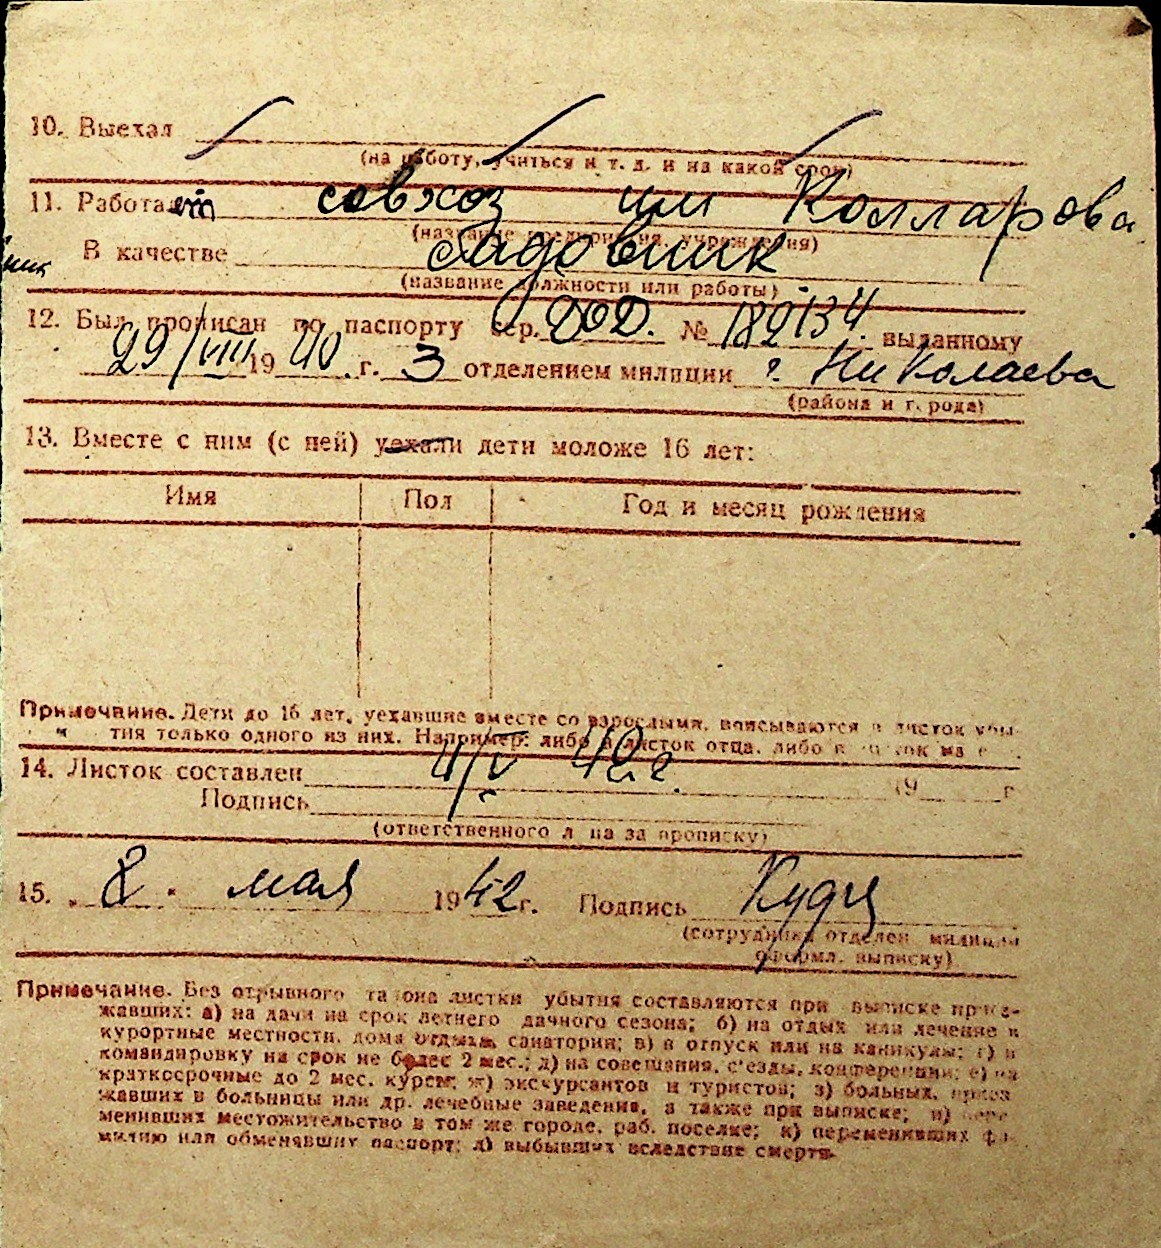 10. Выехал
(на работу, учиться и т. д. и на какой срок)
11. Работает совхоз им Колларова
(название предприятия, учреждения)
В качестве садовник
(название должности или работы)
12. Был прописан по паспорту сер. № 182134 выданному
29/VIII 1940 г. 3 отделением милиции г. Николаева
(района и города)
13. Вместе с ним (с ней) уехали дети моложе 16 лет:
Имя Пол Год и месяц рождения
Примечание. Дети до 16 лет, уехавшие вместе со взрослыми, вписываются в листок убы-
тия только одного из них. Например: либо в листок отца, либо в листок ма
14. Листок составлен 4/V 42 г. 19 г
Подпись
(ответственного лица за прописку)
15. „ 8 " мая 1942 г. Подпись
(сотрудника отделен. милиции
оформл. выписку)
Примечание. Без отрывного талона листки убытия составляются при выписке приез-
жавших: а) на дачи на срок летнего дачного сезона; б) на отдых или лечение в
курортные местности, дома отдыха, санатории; в) в отпуск или на каникулы; г) в
командировку на срок не более 2 мес.; д) на совещания, с'езды, конференции; е) на
краткосрочные до 2 мес. курсы; ж) экскурсантов и туристов; з) больных, приез
жавших в больницы или др. лечебные заведения, а также при выписке; и) пере
менивших местожительство в том же городе, раб. поселке; к) переменивших фа
милию или обменявших паспорт; л) выбывших вследствие смерти.